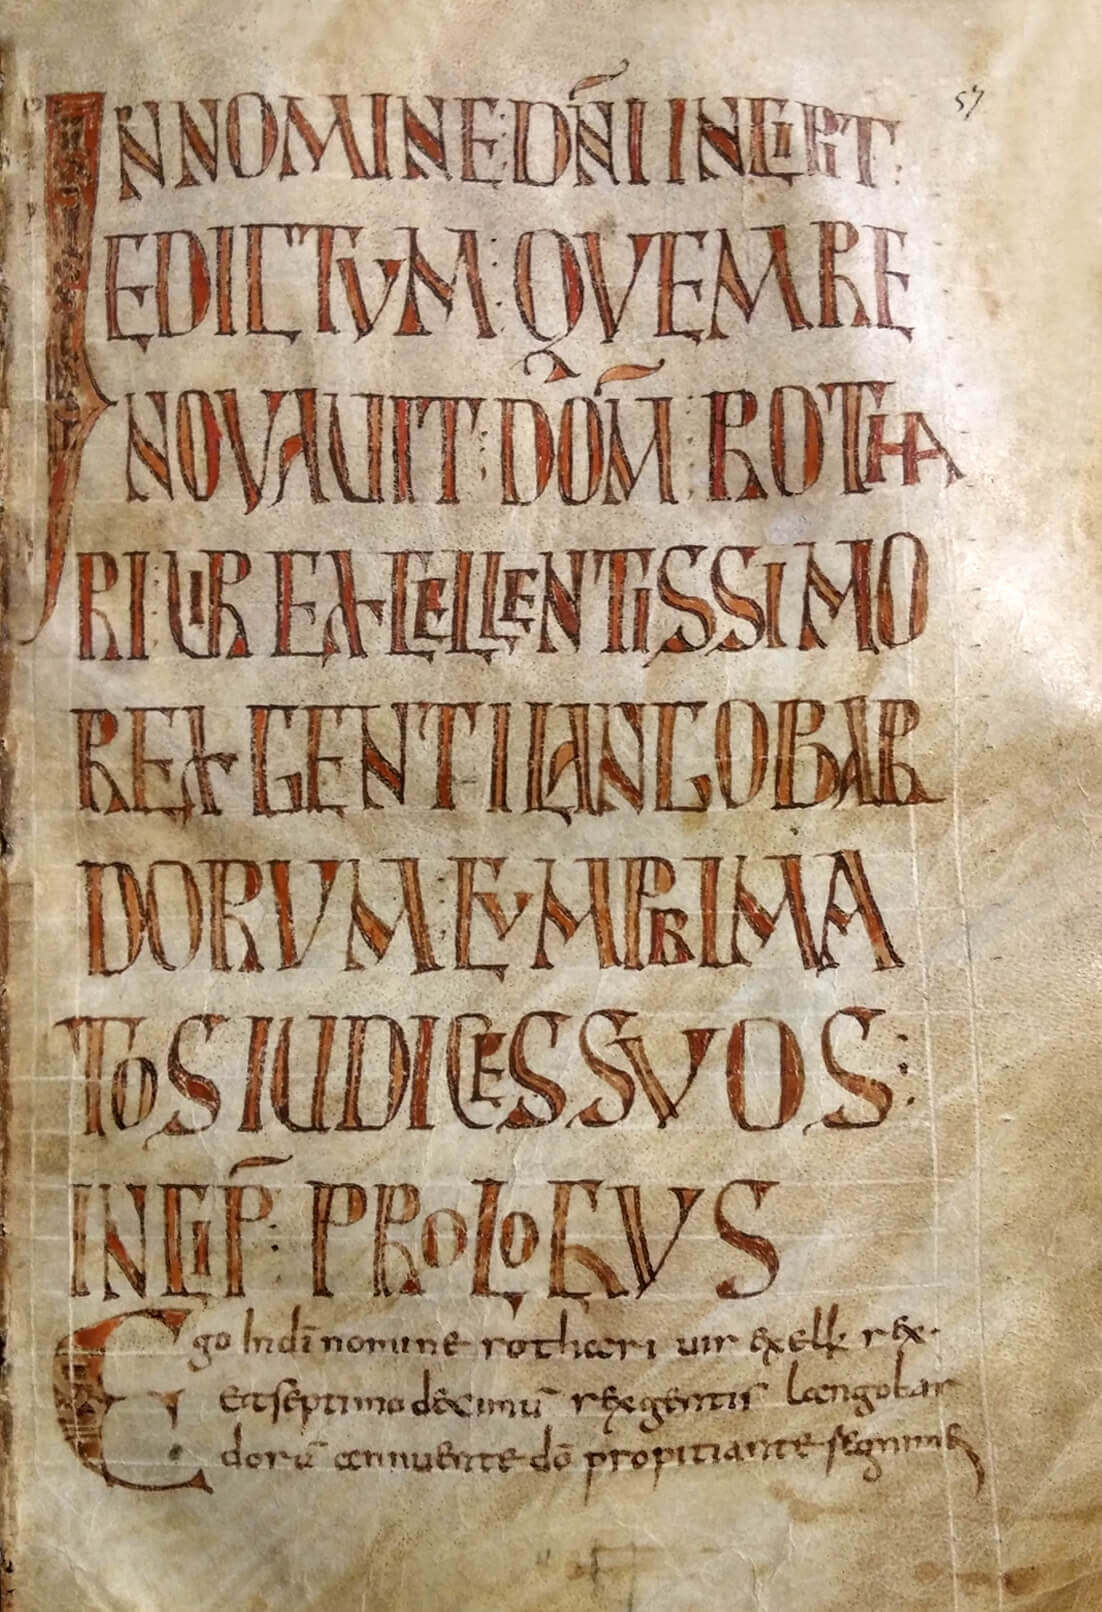 57
IN NOMINE DÑI INCIPIT:
EDICTUM: QUEM RE
NOVAVIT: DOM̃: ROTHA
RI: UIR EXCELLENTISSIMO
REX GENTI LANGOBAR
DORUM: EUM PRIMA
TOS IUDICES SUOS:
INCIP̃: PROLOGUS
Ego In dī nomine rothari uir exell rex.
Et septimo decimū rhegentis Langobar
dorū annuente dō propitiante